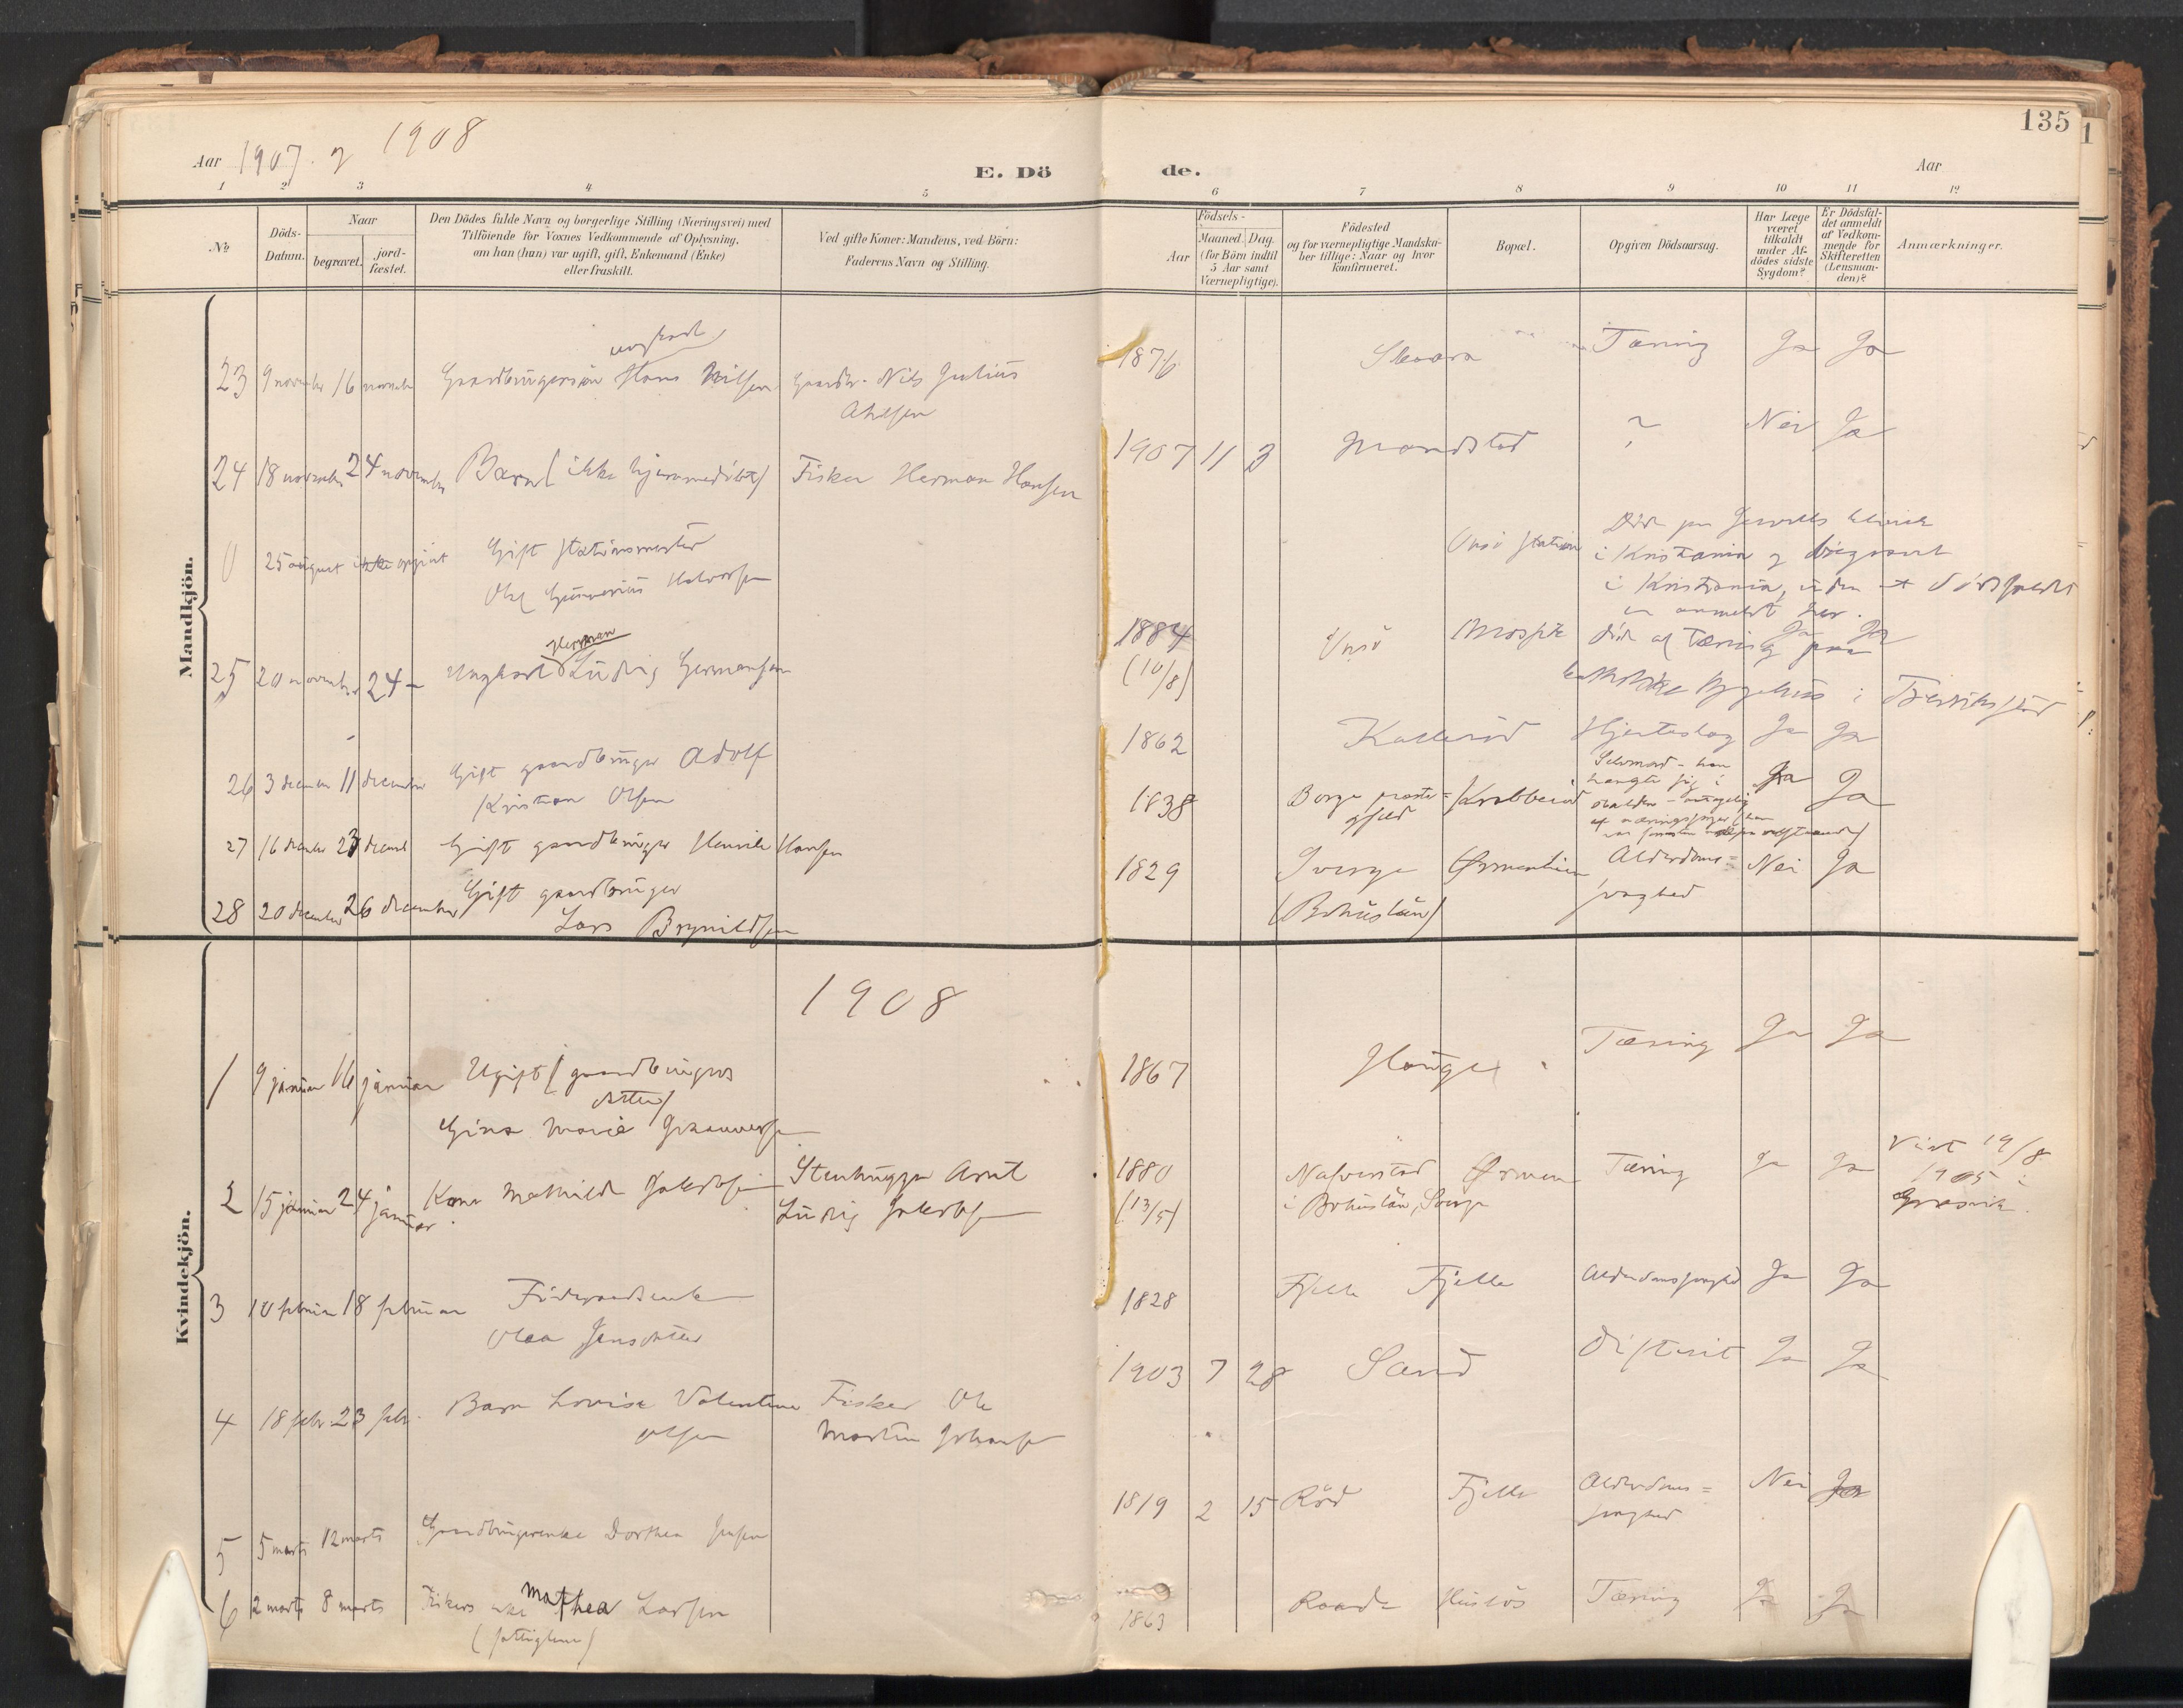 135
1
Aar 1907 og 1908
E. Dö
de.
Aar
1 2 3 4 5 6 7 8 9 10 11 12
No
Döds-
Datum.
Naar
begravet.
jord-
fæstet.
Den Dödes fulde Navn og borgerlige Stilling (Næringsvei) med
Tilföiende for Voxnes Vedkommende af Oplysning,
om han (hun) var ugift, gift, Enkemand (Enke)
eller fraskilt.
Ved gifte Koner: Mandens, ved Börn:
Faderens Navn og Stilling.
Födsels-
Aar
Maaned. Dag.
(for Börn indtil
5 Aar samt
Værnepligtige).
Födested
og for værnepligtige Mandska-
ber tillige: Naar og hvor
konfirmeret.
Bopæl.
Opgiven Dödsaarsag.
Har Læge
været
tilkaldt
under Af-
dödes sidste
Sygdom?
Er Dödsfal-
det anmeldt
af Vedkom-
mende for
Skifteretten
(Lensman-
den)?
Anmærkninger.
Mandkjön.
ungkarl
23 9 november 16 november Gaardbrugersön Hans Nilsen Gaardbr. Nils Julius 1876 Skaara Tæring Ja Ja
24 18 november 24 november Barn (ikke hjemmedöbt) Fisker Herman Hansen 1907 11 3 ? Nei Ja
0 25 august ikke opgivt Gift stationsmester
Onsö station
i Kristiania og begravet
i Kristiania, uden at dödsfaldet
er anmeldt her.
Herman
25 20 november 24 - Ungkarl Ludvig Hermansen 1884
(10/8) Onsö död af tæring paa Ja Ja
katholske sygehus i Fredriksstad
26 3 december 11 december Gift gaardbruger Adolf
Kristian Olsen 1862 Hjerteslag Ja Ja
27 16 december 23 decemb Gift gaardbruger Henrik Hansen 1838 Borge præste-
gjeld Krabberöd Selvmord - han
hængte sig i
Ja Ja
28 20 december 26 december Gift gaardbruger
Lars Brynildsen 1829 Sverge
(Bohuslän) Alderdoms=
svaghed Nei Ja
Kvindekjön.
1908
1 9 januar 16 januar Ugift (gaardbrugers
datter)
Gina Marie 1867 Hauge Tæring Ja Ja
2 15 januar 24 januar. Kone Mathilde Jakobsen Stenhugger Arnt
Ludvig Jakobsen 1880
(13/5) Naverstad
i Bohuslän, Sverge Tæring Ja Ja Viet 19/8
1905 i
Græsvik.
3 10 februar 18 februar Föderaadsenke
Olea Jensdatter 1828 Fjelle Fjelle Alderdomssvaghed Ja Ja
4 18 febr 23 febr. Barn Lovise Valentine
Olsen Fisker Ole
Martin Johansen 1903 7 28 Sand Difterit Ja Ja
5 5 marts 12 marts Gaardbrugerenke Dorthea Jensen 1819 2 15 Röd Fjelle Alderdoms=
svaghed Nei Ja
6 2 marts 8 marts Fiskers enke Mathea Larsen
(fattiglem) 1863 Raade Huslös Tæring Ja Ja